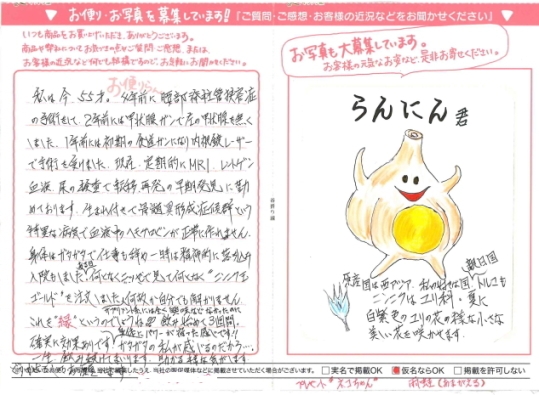 ♥ お便り・お写真を募集しています!! 「ご質問・ご感想・お客様の近況などをお聞かせください」 ♥
いつも商品をお買い上げいただき、ありがとうございます。
商品や弊社についてお気づきの点やご質問・ご感想、または、
お客様の近況など何でも結構ですので、お気軽にお聞かせください。
お便りらん
私は今、55才。4年前に腰部脊柱管狭窄症
の手術をして、2年前には甲状腺ガンで左の甲状腺を無くし
ました。1年前には初期の食道ガンになり内視鏡レーザー
で手術を受けました。現在、定期的にMRI、レントゲン
血液、尿の検査で転移、再発の早期発見に勤
めております。生まれ付きで骨髄異形成症候群という
特異な病気で血液中のヘモグロビンが正常に作れません。
身体はガタガタで仕事も辞め一時は精神的に
入院もしました。何となくニッセンで見て何となく"ニンニク玉
ゴールド"を注文しました。何故か自分でも解かりません
これを"縁"というのでしょうね。飲み始めて3週間。
確実に効果ありです!ガタガタの私が感じるのだから…。
一生、飲み続けてまいります。
お写真も大募集しています。
お客様の元気なお姿など、是非お寄せください。
らんにん君
原産国は西アジア。私の好きな国、トルコも
親日国
ニンニクはユリ科。夏に
白紫色のユリの花の様な小さな
美しい花を咲かせます。
□実名で掲載OK ■仮名ならOK □掲載を許可しない